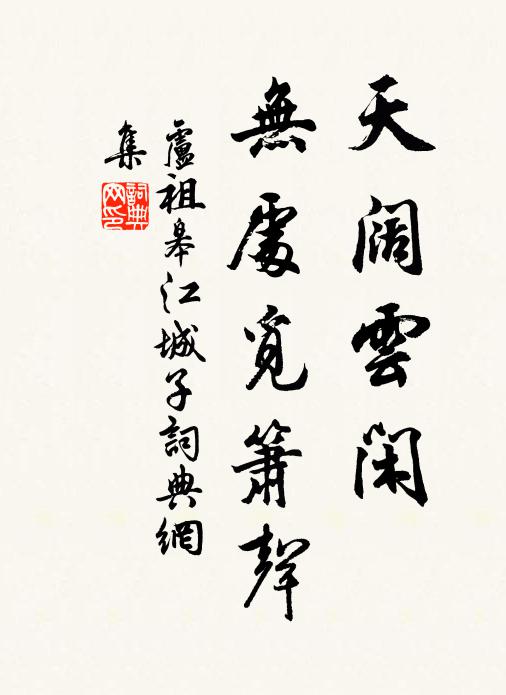 天阔雲閑
無處覓簫聲
盧祖皋江城子詞典網
集
詞典网印